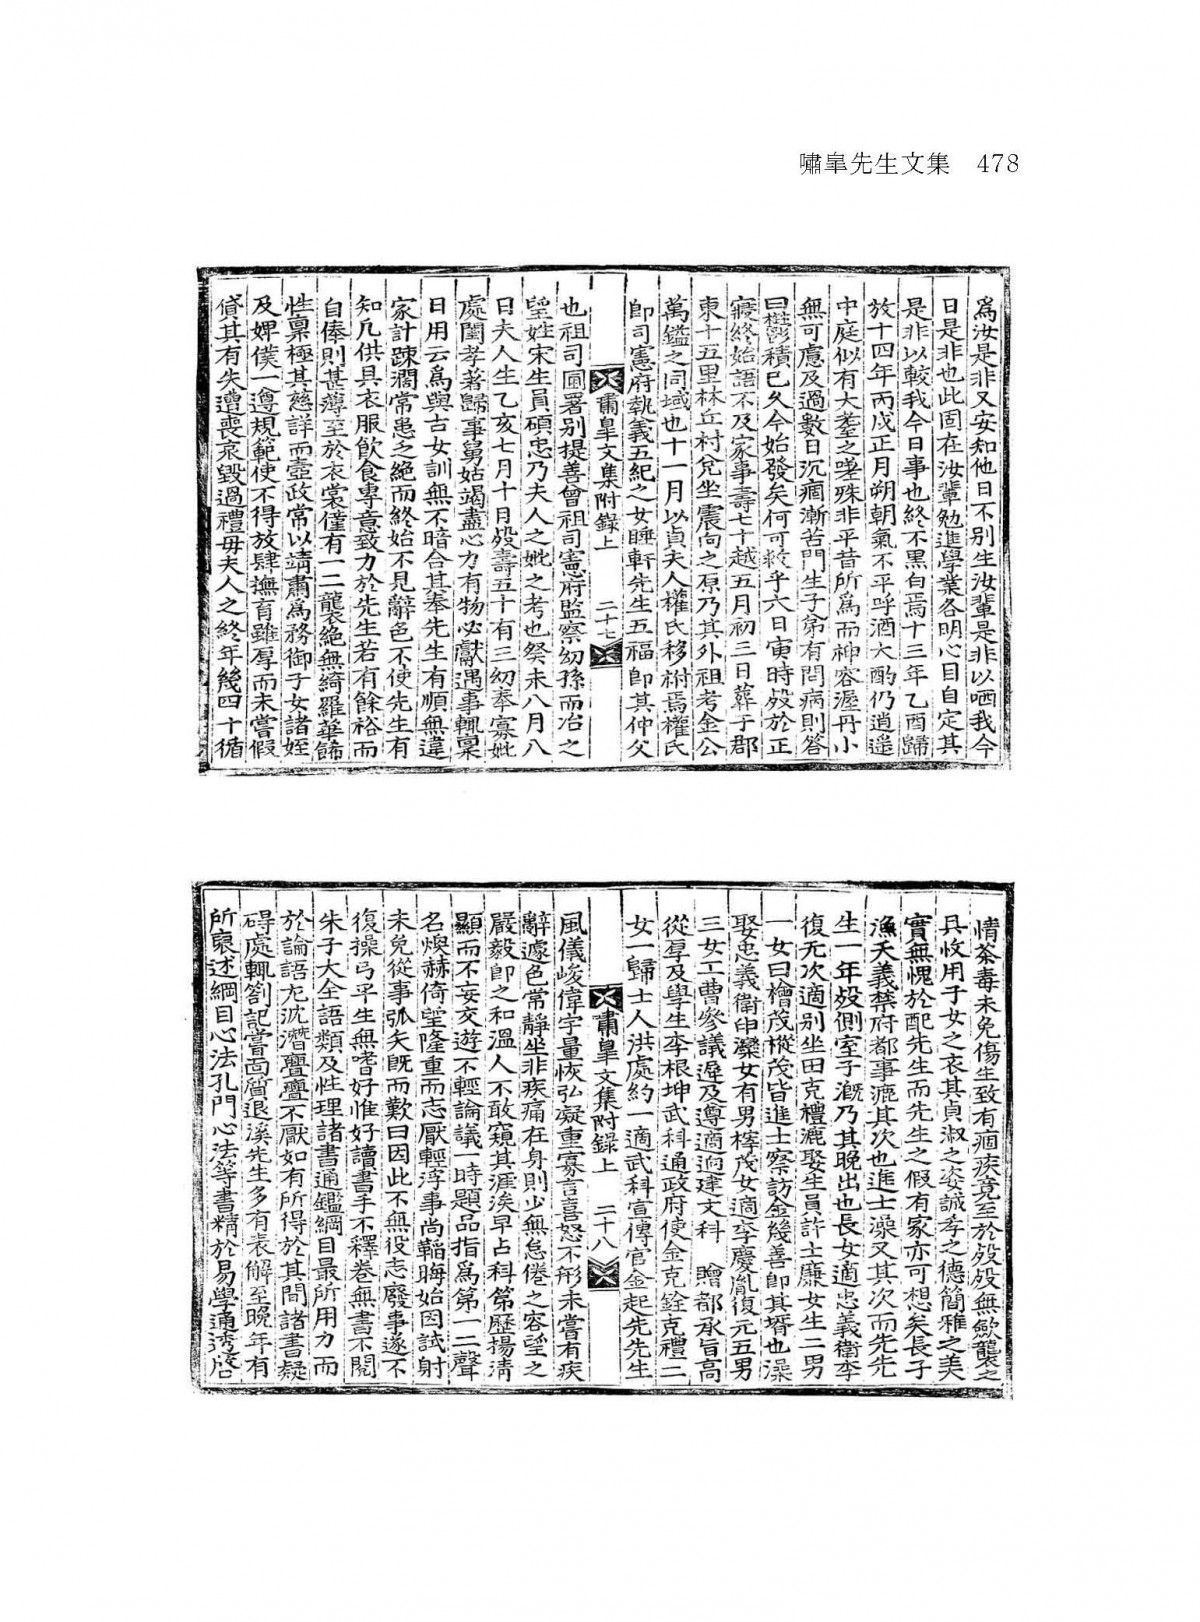 嘯皐先生文集 478
爲汝是非又安知他日不別生汝輩是非以哂我今
日是非也此固在汝輩勉進學業各明心目自定其
是非以較我今日事也終不黑白焉十三年乙酉歸
放十四年丙戌正月朔朝氣不平呼酒大酌仍逍遥
中庭似有大耋之嗟殊非平昔所爲而神容渥丹小
無可慮及過數日沉痼漸苦門生子弟有問病則答
曰 積已久今始發矣何可救乎六日寅時歿於正
寢終始語不及家事壽七十越五月初三日葬于郡
東十五里林丘村兌坐震向之原乃其外祖考金公
萬鎰之同域也十一月以貞夫人權氏移祔焉權氏
卽司憲府執義五紀之女睡軒先生五福卽其仲父
嘯皐文集附錄上 二十七
也祖司圃署別提善曾祖司憲府監察幼孫而冶之
望姓宋生員碩忠乃夫人之妣之考也癸未八月八
日夫人生乙亥七月十日歿壽五十有三幼奉寡妣
處閨孝著歸事舅姑竭盡心力有物必獻遇事輒稟
日用云爲與古女訓無不暗合其奉先生有順無違
家計踈濶常患乏絶而終始不見辭色不使先生有
知凡供具衣服飮食專意致力於先生若有餘裕而
自俸則甚薄至於衣裳僅有一二襲絶無綺羅華飾
性稟極其慈詳而壼政常以靖肅爲務御子女諸姪
及婢僕一遵規範使不得放肆撫育雖厚而未嘗假
貸其有失遭喪哀毀過禮毋夫人之終年幾四十循
情荼毒未免傷生致有痼疾竟至於歿歿無歛襲之
具收用子女之衣其貞淑之姿誠孝之德簡雅之美
實無愧於配先生而先生之假有家亦可想矣長子
漁夭義禁府都事漉其次也進士澡又其次而先先
生一年歿側室子漑乃其晚出也長女適忠義衛李
復无次適別坐田克禮漉娶生員許士廉女生二男
一女曰檜茂樅茂皆進士察訪金幾善卽其壻也澡
娶忠義衛申濼女有男樗茂女適李慶胤復元五男
三女工曹參議遲及遵適逈建文科 贈都承旨高
從厚及學生李根坤武科通政府使金克銓克禮二
女一歸士人洪處約一適武科宣傳官金起先先生
嘯皐文集附錄上 二十八
風儀峻偉宇量恢弘凝重寡言喜怒不形未嘗有疾
辭遽色常靜坐非疾痛在身則少無怠倦之容望之
嚴毅卽之和溫人不敢窺其涯涘早占科第歷揚淸
顯而不妄交遊不輕論議一時題品指爲第一二聲
名煥赫倚望隆重而志厭輕浮事尚韜晦始因試射
未免從事弧矢旣而歎曰因此不無役志廢事遂不
復操弓平生無嗜好惟好讀書手不釋卷無書不閱
朱子大全語類及性理諸書通鑑綱目最所用力而
於論語尤沈潛亹亹不厭如有所得於其間諸書疑
碍處輒劄記嘗面質退溪先生多有表解至晚年有
所裒述綱目心法孔門心法等書精於易學通透啓